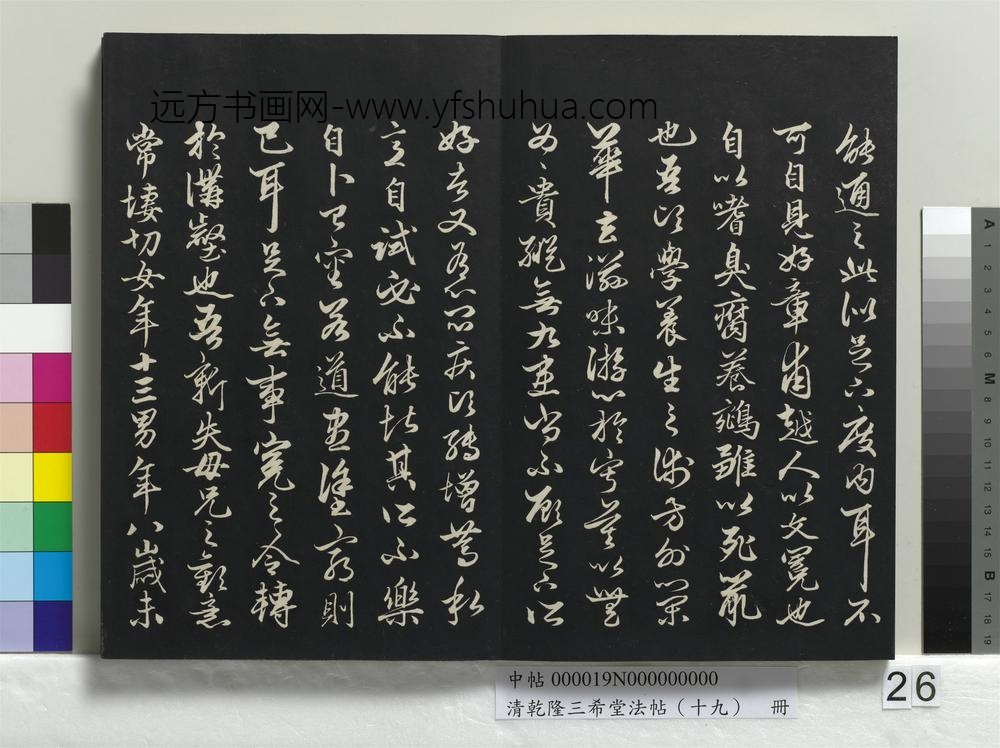 能通之此似足下度內耳不
可自見好章甫越人以文冕也
自以嗜臭腐養鵷雛以死鼠
也吾頃學養生之術方外榮
華去滋味游心於寂寞以無
為〻貴縱無九患尚不顧足下所
好者又有心悶疾頃轉增篤私
意自試必不能堪其所不樂
自卜已審若道盡塗窮則
已耳足下無事冤之令轉
於溝壑也吾新失母兄之歡意
常悽切女年十三男年八歲未
远方书画网-www.yfshuhua.com
中帖 000019N000000000
清乾隆三希堂法帖（十九） 冊
26
A 1 2 3 4 5 6 M 8 9 10 11 12 13 14 15 B 17 18 19